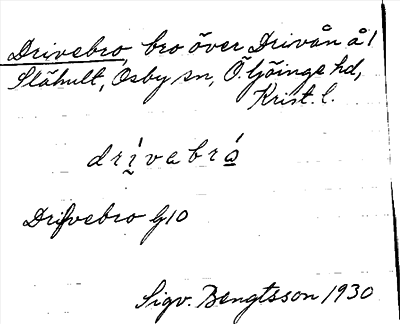 Drivebro, bro över Drivån å 1
Slähult, Osby sn, Ö. Göinge hd,
Krist. l.
drívabró̲
Drifvebro G10
Sigv. Bengtsson 1930